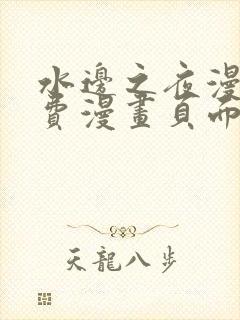 水邊之夜漫
費漫畫頁面
天龍八步